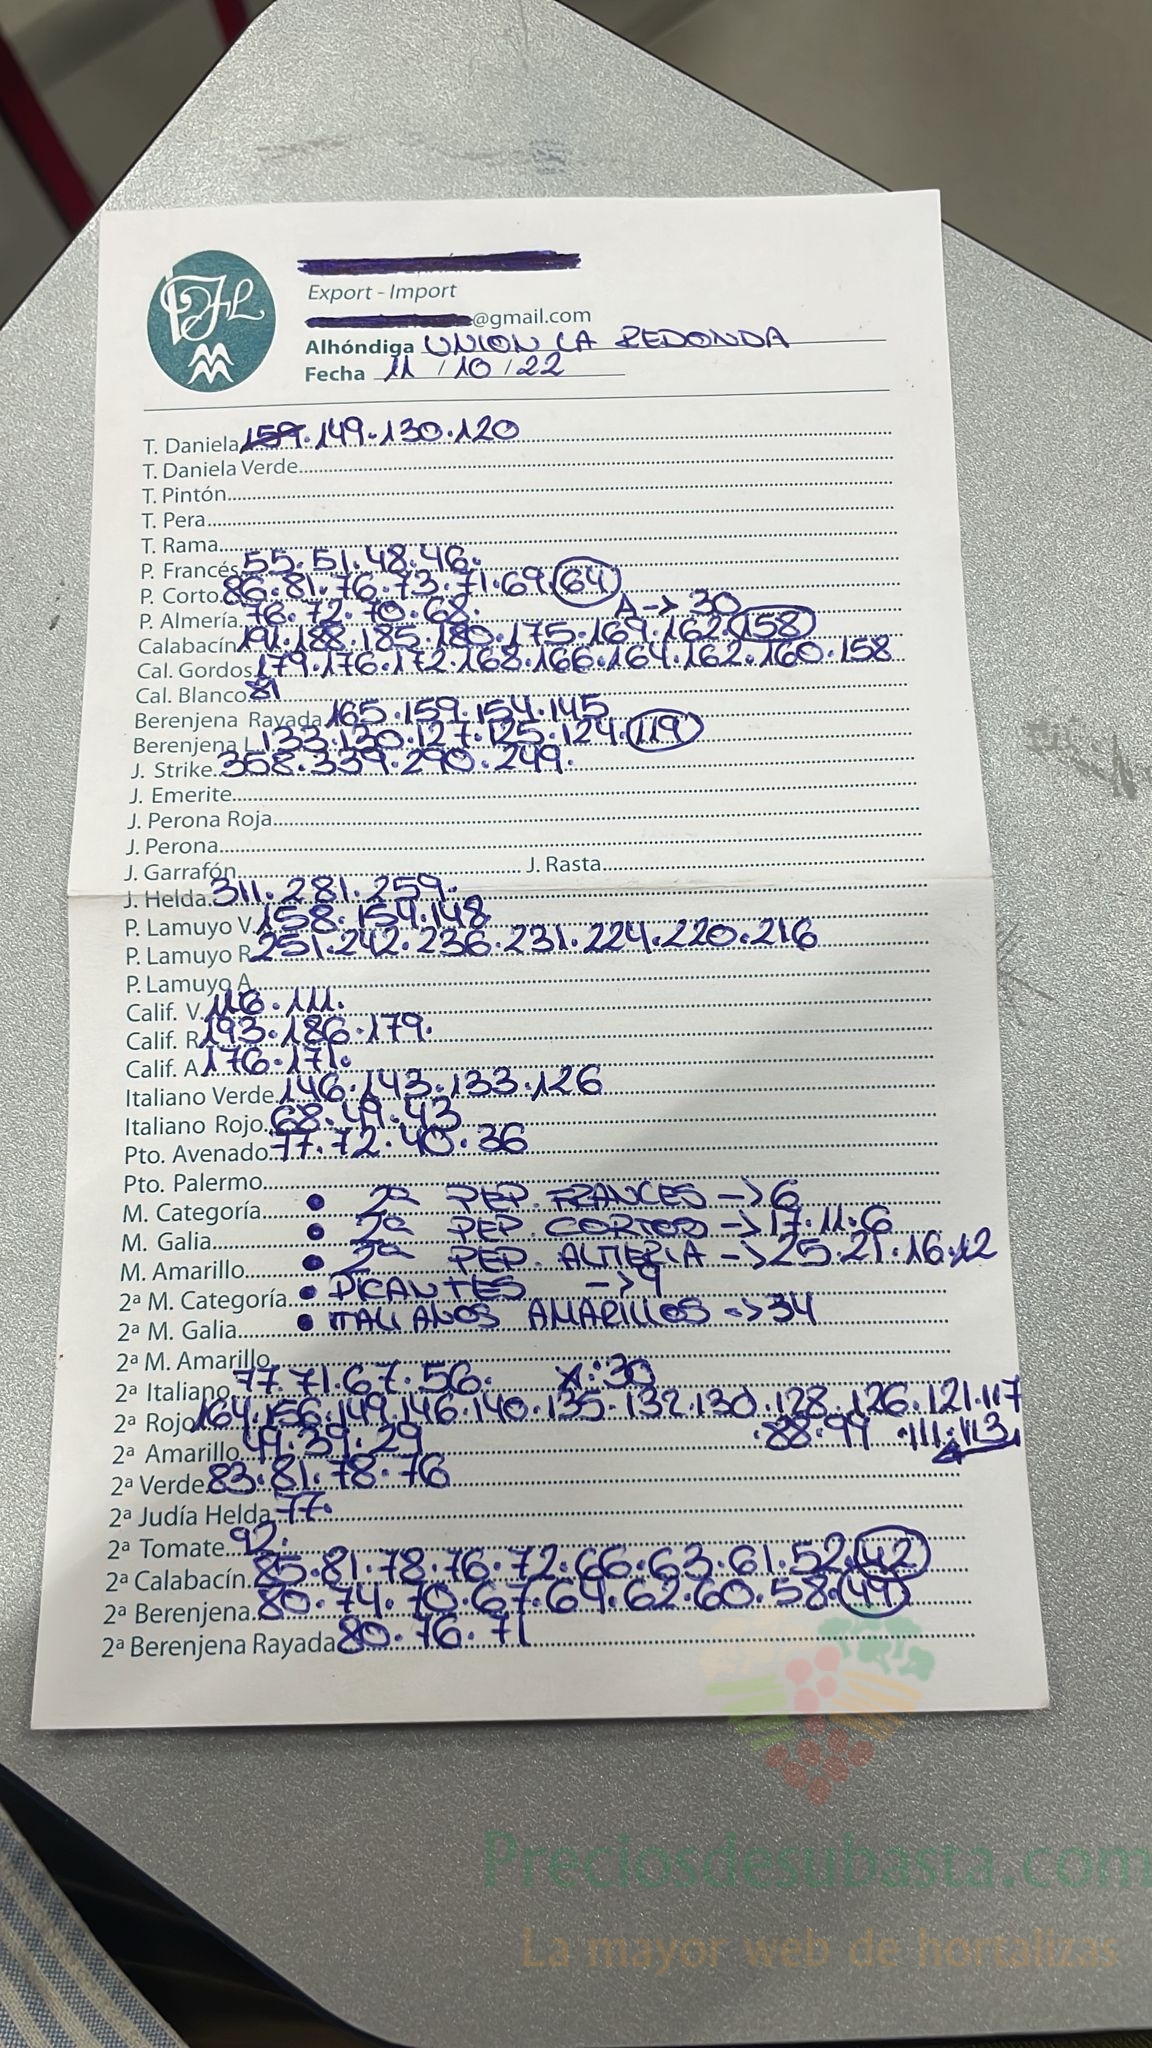 Export - Import
@gmail.com
Alhóndiga UNION LA REDONDA
Fecha 11/10/22
T. Daniela 159.149.130.120
T. Daniela Verde
T. Pintón
T. Pera
T. Rama
P. Francés 55.51.48.46.
P. Corto 86.81.76.73.71.69.64
P. Almería 76.72.70.68. A->30
Calabacín 191.188.185.180.175.169.162.158
Cal. Gordos 179.176.172.168.166.164.162.160.158
Cal. Blanco 81
Berenjena Rayada 165.159.154.145
Berenjena L 133.130.127.125.124.119
J. Strike 358.339.290.249.
J. Emerite
J. Perona Roja
J. Perona
J. Garrafón J. Rasta
J. Helda 311.281.259.
P. Lamuyo V. 158.154.148
P. Lamuyo R. 251.242.236.231.224.220.216
P. Lamuyo A
Calif. V. 116.111.
Calif. R 193.186.179.
Calif. A 176.171.
Italiano Verde 146.143.133.126
Italiano Rojo 68.49.43
Pto. Avenado 77.72.40.36
Pto. Palermo
M. Categoría • 2ª PEP. FRANCES ->6
M. Galia • 2ª PEP. CORTOO ->17.11.6
M. Amarillo • 2ª PEP. ALMERIA ->25.21.16.12
2ª M. Categoría • PICANTES ->9
2ª M. Galia • ITALIANOS AMARILLOS ->34
2ª M. Amarillo
2ª Italiano 77.71.67.56. X:30
2ª Rojo 164.156.149.146.140.135.132.130.128.126.121.117
.88.99 .111.113
2ª Amarillo 49.39.29
2ª Verde 83.81.78.76
2ª Judía Helda 77.
2ª Tomate 92.
2ª Calabacín 85.81.78.76.72.66.63.61.52.42
2ª Berenjena 80.74.70.67.64.62.60.58.49
2ª Berenjena Rayada 80.76.71
Preciosdesubasta.com
La mayor web de hortalizas